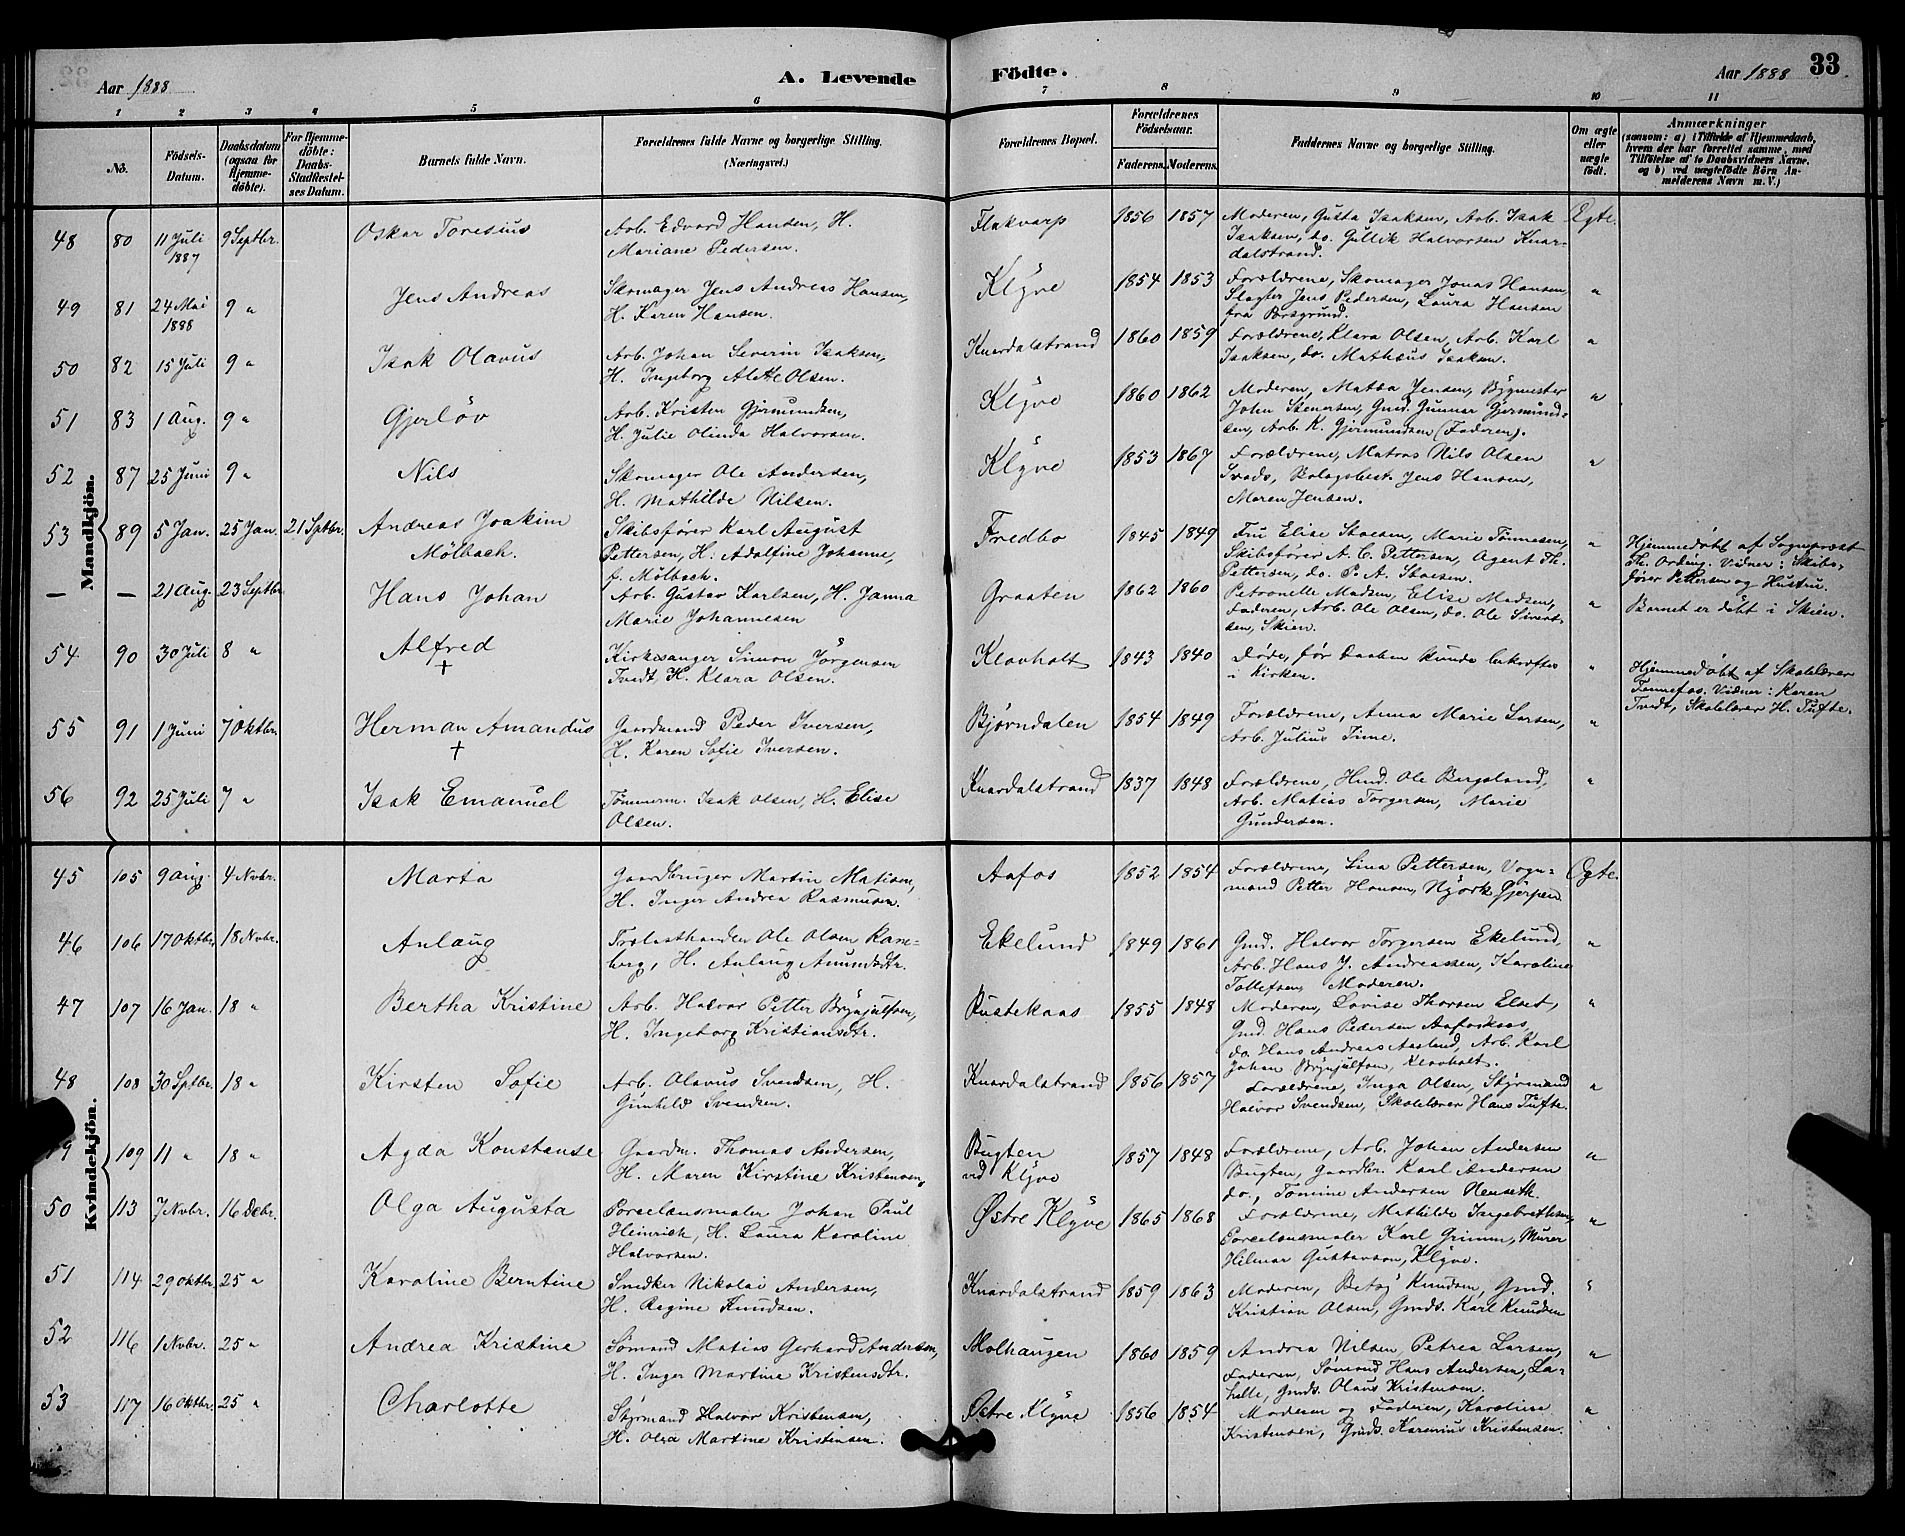 Aar 1888 A. Levende Födte. Aar 1888 33
1 2 3 4 5 6 7 8 9 10 11
No. Födsels-Datum. Daabsdatum (ogsaa for Hjemme-döbte). For Hjemme-döbte: Daabs-Stadfæstel-ses Datum. Barnets fulde Navn. Forældrenes fulde Navne og borgerlige Stilling. (Næringsvei.) Forældrenes Bopæl. Forældrenes Födselsaar. Faderens. Moderens. Faddernes Navne og borgerlige Stilling. Om ægte eller uægte födt. Anmærkninger (saasom: a) i Tilfælde af Hjemmedaab, hvem der har forrettet samme, med Tilföielse af to Daabsvidners Navne, og b) ved uægtefödte Börn Anmelderens Navn m. V.)
Mandkjön.
48 80 11 Juli 1887 9 Septbr. Oskar Toresius Arb. Edvard Hansen, H. Mariane Pedersen. Flakvarp 1856 1857 Moderen, Gusta Isaksen, Arb. Isak Isaksen, do. Gullik Halvorsen Knardalstrand. Egte.
49 81 24 Mai 1888 9 " Jens Andreas Skomager Jens Andreas Hansen, H. Karen Hansen. Klÿve 1854 1853 Forældrene, Skomager Jonas Hansen, Slagter Jens Pedersen, Laura Hansen fra Porsgrund. "
50 82 15 Juli 9 " Isak Olavus Arb. Johan Severin Isaksen, H. Ingeborg Alette Olsen. Knardalstrand 1860 1859 Forældrene, Klara Olsen, Arb. Karl Isaksen, do. Mathæus Isaksen. "
51 83 1 Aug. 9 " Gjerlöv Arb. Kristen Gjermundsen, H. Julie Olinda Halvorsen. Klÿve 1860 1862 Moderen, Matea Jensen, Bygmester John Stenersen, Gmd. Gunnar Gjermundsen, Arb. K. Gjermundsen (Faderen). "
52 87 25 Juni 9 " Nils Skomager Ole Andersen, H. Mathilde Nilsen. Klÿve 1853 1867 Forældrene, Matros Nils Olsen Jens Hansen, Maren Jensen. "
53 89 5 Jan. 25 Jan. 21 Septbr. Andreas Joakim Mölbach. Skibsfører Karl August Pettersen, H. Adolfine Johanne, f. Mölbach. Fredbo 1845 1849 Fru Elise Stoesen, Marie Tönnesen, Skibsfører A. C. Pettersen, Agent Th. Pettersen, do. P. A. Stoesen. " Hjemmedøbt af Sogneprest Th. Ording. Vidner: Skibsfører Pettersen og Hustru.
— — 21 Aug. 23 Septbr. Hans Johan Arb. Gustav Karlsen, H. Janna Marie Johannesen Graaten 1862 1860 Petronelle Madsen, Elise Madsen, Faderen, Arb. Ole Olsen, do. Ole Sivertsen, Skien. " Barnet er döbt i Skien.
54 90 30 Juli 8 " Alfred + Kirkesanger Simon Jörgensen Tvedt, H. Klara Olsen. Klovholt 1843 1840 Døde, før Daaben kunde bekræftes i Kirken. " Hjemmedøbt af Skolelærer Tennefos. Vidner: Karen Tvedt, Skolelærer H. Tufte.
55 91 1 Juni 7 Oktbr. Herman Amandus + Gaardmand Peder Iversen, H. Karen Sofie Iversen. Bjørndalen 1854 1849 Forældrene, Anna Marie Larsen, Arb. Julius "
56 92 25 Juli 7 " Isak Emanuel Tömmerm. Isak Olsen, H. Elise Olsen. Knardalstrand 1837 1848 Forældrene, Ole Bergsland, Arb. Matias Torgersen, Marie Gundersen. "
Kvindekjön.
45 105 9 Aug. 4 Novbr. Marta Gaardbruger Martin Matisen, H. Inger Andrea Rasmusen. Aafos 1852 1854 Forældrene, Lina Pettersen, Vognmand Petter Hansen, Nÿork Gjerpen Egte.
46 106 17 Oktbr. 18 Novbr. Aulaug Trælasthandler Ole Olsen Ramberg, H. Aulaug Amundsdtr. Ekelund 1849 1861 Gmd. Halvor Torgersen Ekelund, Arb. Hans J. Andreassen, Karoline Tollefsen, Moderen. "
47 107 16 Jan. 18 " Bertha Kristine Arb. Halvor Petter Brynjulfsen, H. Ingeborg Kristiansdtr. Rustekaas 1855 1848 Moderen, Lovise Thorsen Elset, Gmd. Hans Pedersen Aafoskaas, do. Hans Andreas Aaslund, Arb. Karl Johan Brynjulfsen, Klovholt. "
48 108 30 Sptbr. 18 " Kirsten Sofie Arb. Olavus Svendsen, H. Gunhild Svendsen. Knardalstrand 1856 1857 Forældrene, Inga Olsen, Styrmand Halvor Svendsen, Skolelærer Hans Tufte. "
109 11 " 18 " Agda Konstanse Gaardm. Thomas Andersen, H. Maren Kirstine Kristensen, Bugten ved Klÿve 1857 1848 Forældrene, Arb. Johan Andersen Bugten, Gaardbr. Karl Andersen do., Tomine Andersen Henseth. "
50 113 7 Novbr. 16 Debr. Olga Augusta Porcelænsmaler Johan Paul Heinrich, H. Laura Karoline Halvorsen. Østre Klÿve 1865 1868 Forældrene, Mathilde Ingebretsen, Porcelænsmaler Karl Grimm, Murer Hilmar Gustavson, Klÿve. "
51 114 29 Oktbr. 25 " Karoline Berntine Snedker Nikolai Andersen, H. Regine Knudsen. Knardalstrand 1859 1863 Moderen, Betsÿ Knudsen, Gmd. Kristian Olsen, Gmds. Karl Knudsen "
52 116 1 Novbr. 25 " Andrea Kristine Sømand Matias Gerhard Andersen, H. Inger Martine Kristensdtr. Molhaugen 1860 1859 Andrea Nilsen, Petrea Larsen, Faderen, Sømand Hans Andersen, Lahelle, Gmds. Olaus Kristensen. "
53 117 16 Oktbr. 25 " Charlotte Styrmand Halvor Kristensen, H. Olea Martine Kristensen. Østre Klÿve 1856 1854 Moderen og Faderen, Karoline Kristensen, Gmds. Karenius Kristensen. "